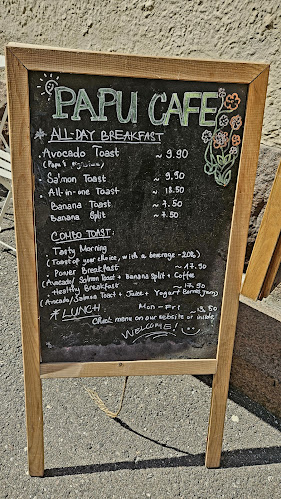 PAPU CAFE
* ALL-DAY BREAKFAST
. Avocado Toast ~ 9.90
(Papu's
. Salmon Toast ~ 9.90
. All-in-one Toast ~ 18.50
Banana Toast ~ 7.50
Banana Split ~ 7.50
COMBO TOAST:
. Tasty Morning
(Toast of your choice, with a beverage -20%)
. Power Breakfast ~ 17.90
(Avocado/Salmon Toast + Banana Split + Coffee
+ Healthy Breakfast ~ 17.90
(Avocado/Salmon Toast + Juice + Yogurt Berries
* LUNCH Mon - Fri
~ 13.50
Check menu on our website or inside
WELCOME!